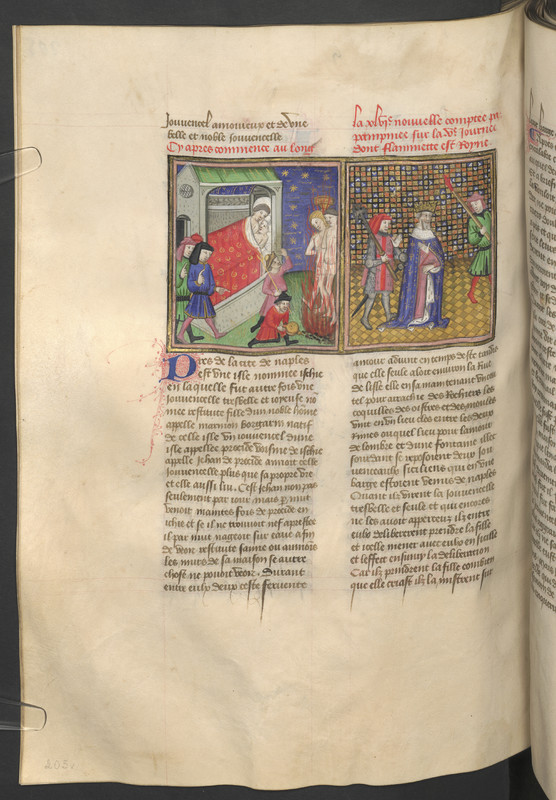 Jouvencel amoureux et dune
belle et noble jouvencelle
Cy apres commence au long
Pres de la cite de naples
est une isle nommee ischie
en laquelle fut autre fois une
jouvencelle tresbelle et joyeuse no
mee restitute fille dun noble home
appelle marmon borgarin natif
de celle isle Un jouvencel dune
isle appellee procide voisine de ischie
appelle jehan de procide amoit celle
jouvencelle plus que sa propre vie
et elle aussi lui. Cest jehan non pas
seulement par jour mais par nuit
venoit maintes fois de procide en
ischie et se il ne trouvoit nef apreste
il par nuit nageoit sur eaue afin
de veoir restitute sainne ou aumoins
les murs de sa maison se autre
chose ne pouoit veoir. Durant
entre eulx deux ceste fervente
la xlvie nouvelle comptee par
pampinee sur la ve journee
dont flammette est Royne
amour advint en temps deste tandis
que elle seule aloit environ la Rive
de lisle elle en sa main tenant un cou
tel pour arrachier des Rochiers les
coquilles des oistres et des moules
vint en un lieu clos entre les deux
Rives ou quel lieu pour lamour
de lombre et dune fontaine illec
sourdant se reposoient deux jou
venceaulx siciliens qui en une
barge estoient venus de naples
Quant ilz virent la jouvencelle
tresbelle et seule et qui encores
ne les avoit apperceuz ilz entre
eulx delibererent prendre la fille
et icelle mener avec eulx en sicille
et leffect ensuivy la deliberation
Car ilz prindrent la fille combien
que elle criast ilz la mistrent sur
205v